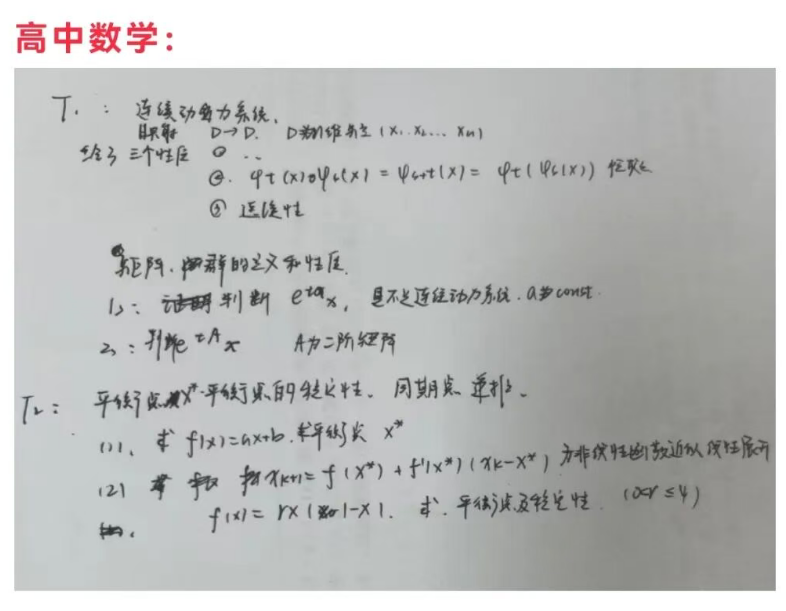 高中数学：
T₁： 连续动力系统,
映射 D→D. D为n维向量 (x₁. x₂... xn)
给了三个性质 ① ..
②. φt(x)∘φs(x) = φs+t(x) = φt(φs(x))
③ 连续性
矩阵. 群的定义和性质.
1): 判断 e^{ta}x, 是不是连续动力系统. a为const.
2): 判断e^{tA}x A为二阶矩阵
T₂: 平衡点x*. 平衡点的稳定性. 周期点
(1). 求 f(x)=ax+b. 求平衡点 x*
(2) xk+1= f(x*)+f'(x*)(xk-x*) 为非线性函数近似线性展开
f(x)= rx(1-x). 求. 平衡点及稳定性. (0<r≤4)